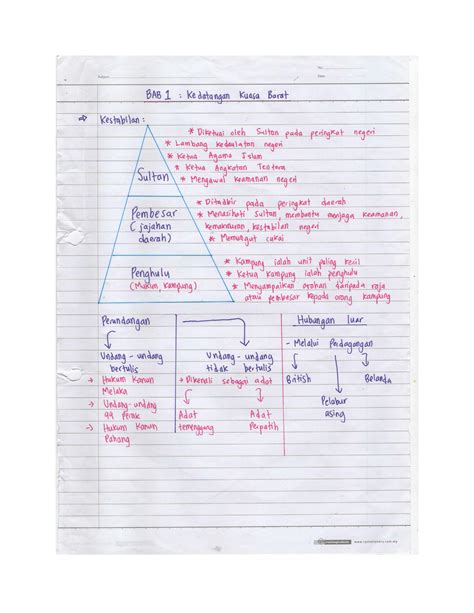 No:
Date:
BAB 1 : Kedatangan Kuasa Barat
⇒ Kestabilan :
* Diketuai oleh Sultan pada peringkat negeri
* Lambang kedaulatan negeri
* Ketua Agama Islam
* Ketua Angkatan Tentera
* Mengawal keamanan negeri
Sultan
* Ditadbir pada peringkat daerah
* Menasihati Sultan, membantu menjaga keamanan,
kemakmuran, kestabilan negeri
* Memungut cukai
Pembesar
(jajahan
daerah)
* Kampung ialah unit paling kecil
* Ketua kampung ialah penghulu
* Menyampaikan arahan daripada raja
atau pembesar kepada orang kampung
Penghulu
(Mukim, Kampung)
Perundangan
Hubungan luar
Undang-undang
bertulis
Undang-undang
tidak bertulis
- Melalui Perdagangan
→ Hukum Kanun
Melaka
→ Undang-undang
99 Perak
→ Hukum Kanun
Pahang
- Dikenali sebagai adat
Adat
temenggong
Adat
Perpatih
British
Belanda
Pelabur
asing